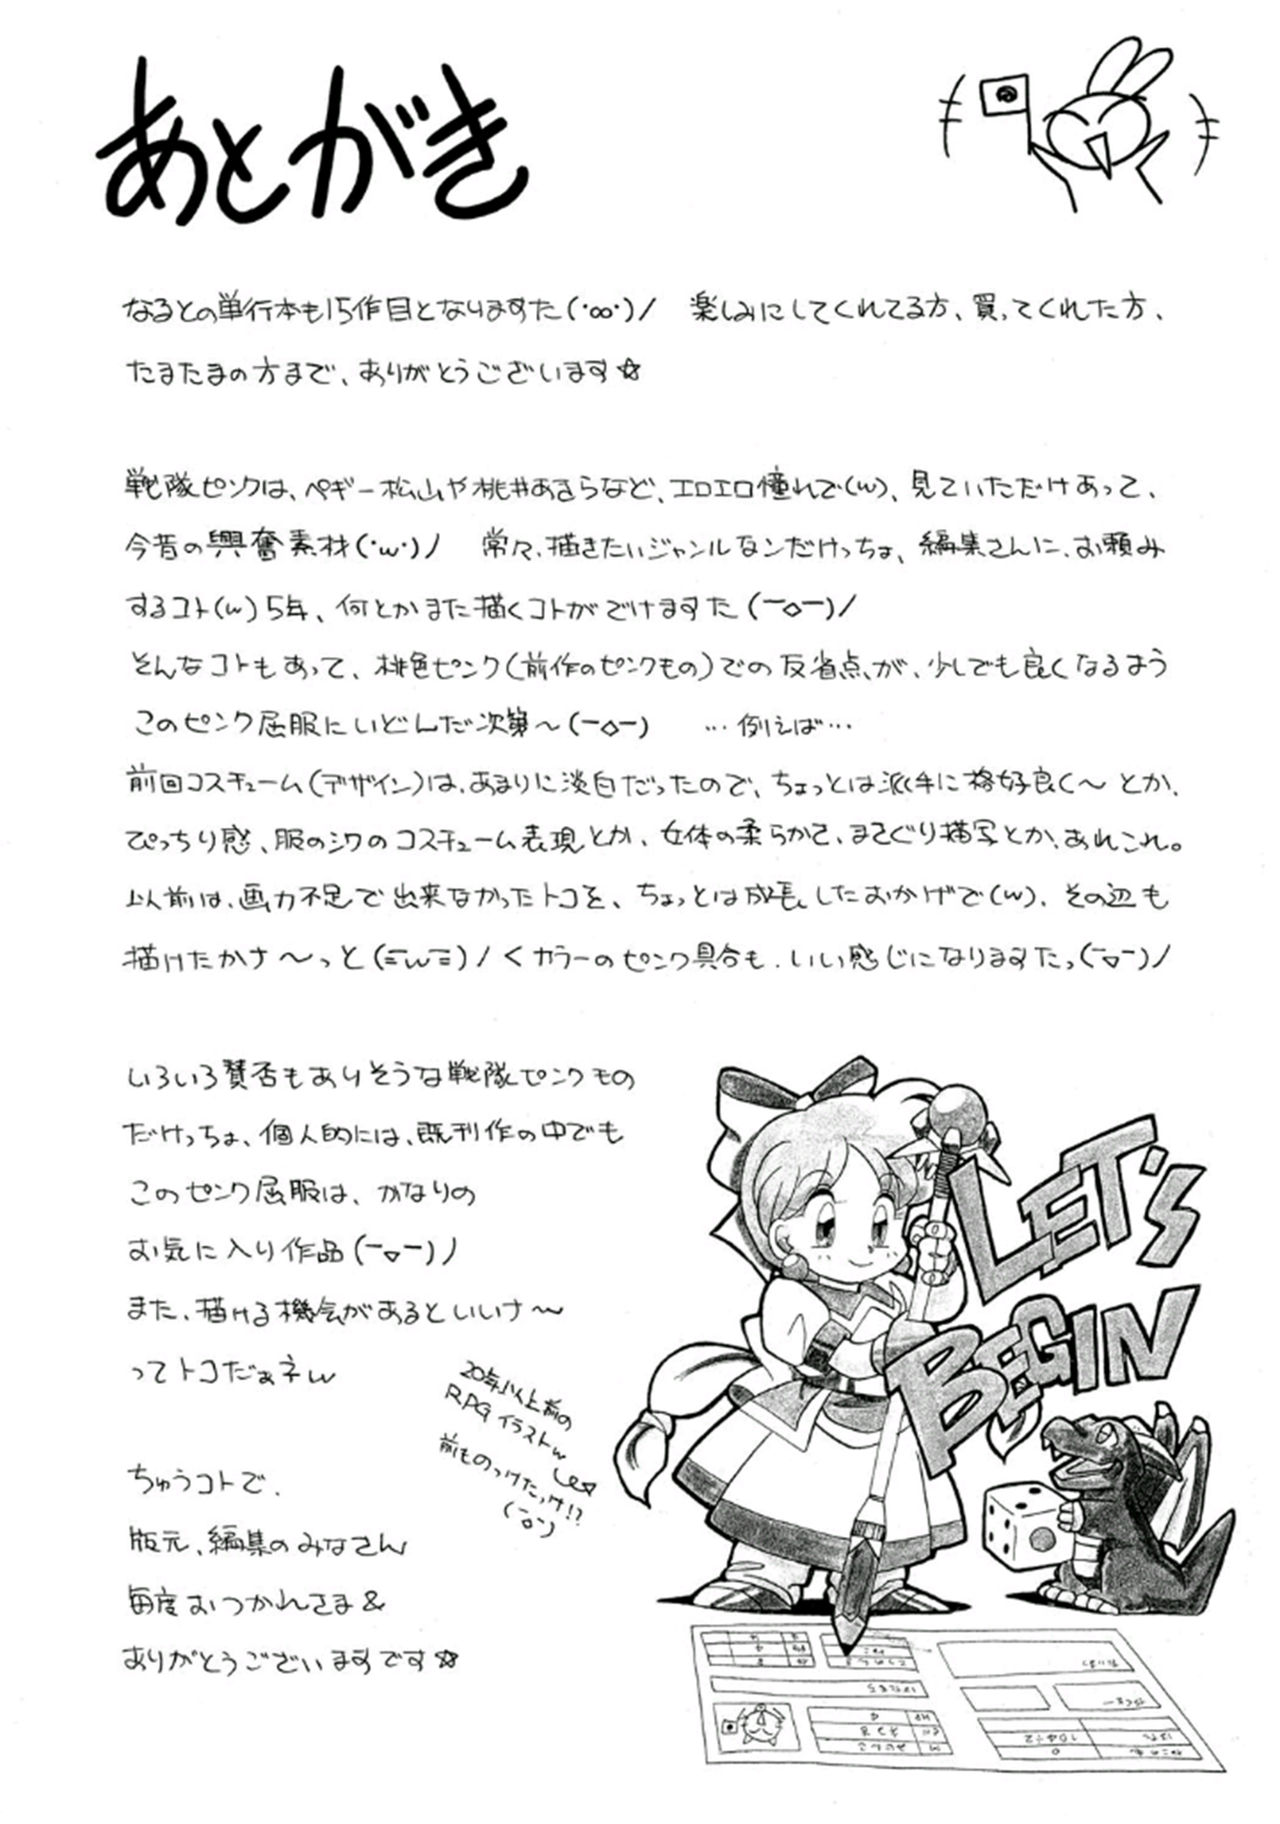 あとがき
なるとの単行本も15作目となりますた(・∞・)/　楽しみにしてくれてる方、買ってくれた方、
たまたまの方まで、ありがとうございます☆
戦隊ピンクは、ペギー松山や桃井あきらなど、エロエロ憧れで(w)、見ていただけあって、
今昔の興奮素材(・w・)ノ　常々、描きたいジャンルなンだけっちょ、編集さんに、お頼み
するコト(w)5年、何とかまた描くコトがでけますた(ー◇ー)/
そんなコトもあって、桃色ピンク(前作のピンクもの)での反省点が、少しでも良くなるよう
このピンク屈服にいどんだ次第～(ー◇ー)　…例えば…
前回コスチューム(デザイン)は、あまりに淡白だったので、ちょっとは派手に格好良く～とか、
ぴっちり感、服のシワのコスチューム表現とか、女体の柔らかさ、まさぐり描写とか、あれこれ。
以前は、画力不足で出来なかったトコを、ちょっとは成長したおかげで(w)、その辺も
描けたかナ～っと(ΞwΞ)/く カラーのピンク具合も、いい感じになりますたっ(ー▽ー)/
いろいろ賛否もありそうな戦隊ピンクもの
だけっちょ、個人的には、既刊作の中でも
このピンク屈服は、かなりの
お気に入り作品(ー▽ー)ノ
また、描ける機会があるといいナ～
ってトコだぁネw
20年以上前の
RPGイラストw
前ものっけたっけ!?
(ーo-)
ちゅうコトで、
版元、編集のみなさん
毎度おつかれさま&
ありがとうございますです☆
LET'S
BEGIN